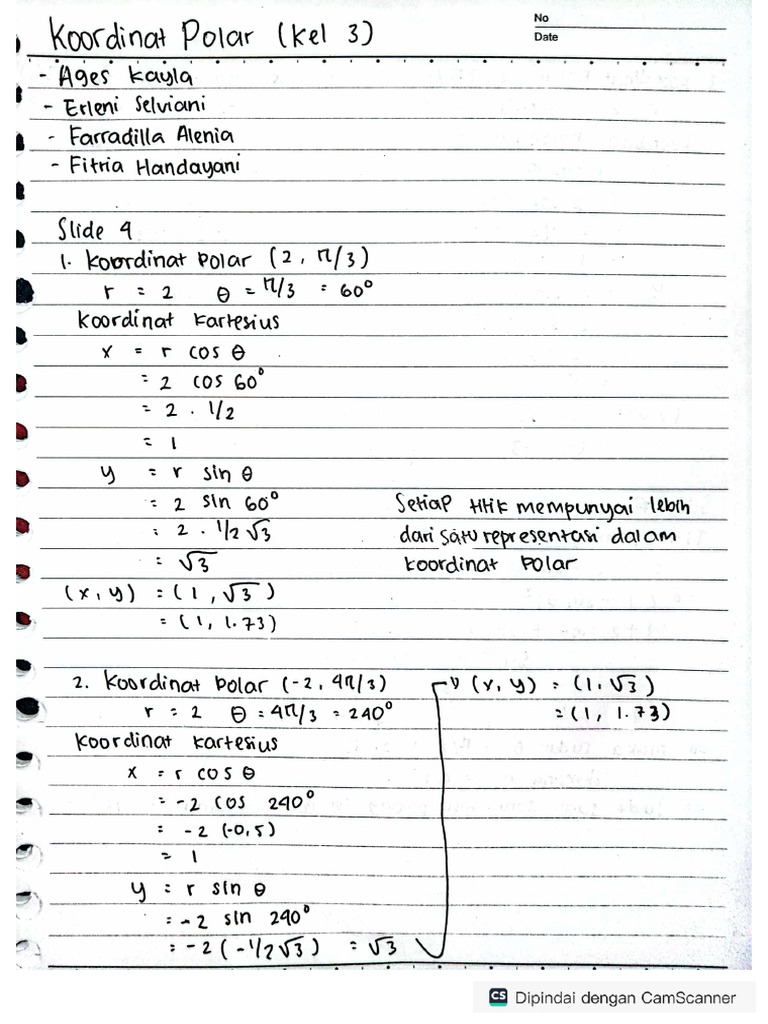 Koordinat Polar (Kel 3)
No
Date
- Ages Kayla
- Erleni Selviani
- Farradilla Alenia
- Fitria Handayani
Slide 4
1. Koordinat Polar (2, π/3)
r = 2 θ = π/3 = 60°
Koordinat Kartesius
x = r cos θ
= 2 cos 60°
= 2 . 1/2
= 1
y = r sin θ
= 2 sin 60°
= 2 . 1/2 √3
= √3
(x, y) = (1, √3)
= (1, 1.73)
Setiap titik mempunyai lebih
dari satu representasi dalam
koordinat Polar
2. Koordinat Polar (-2, 4π/3)
r = 2 θ = 4π/3 = 240°
Koordinat Kartesius
x = r cos θ
= -2 cos 240°
= -2 (-0,5)
= 1
y = r sin θ
= -2 sin 240°
= -2 (-1/2 √3) = √3
(x, y) = (1, √3)
= (1, 1.73)
CS Dipindai dengan CamScanner